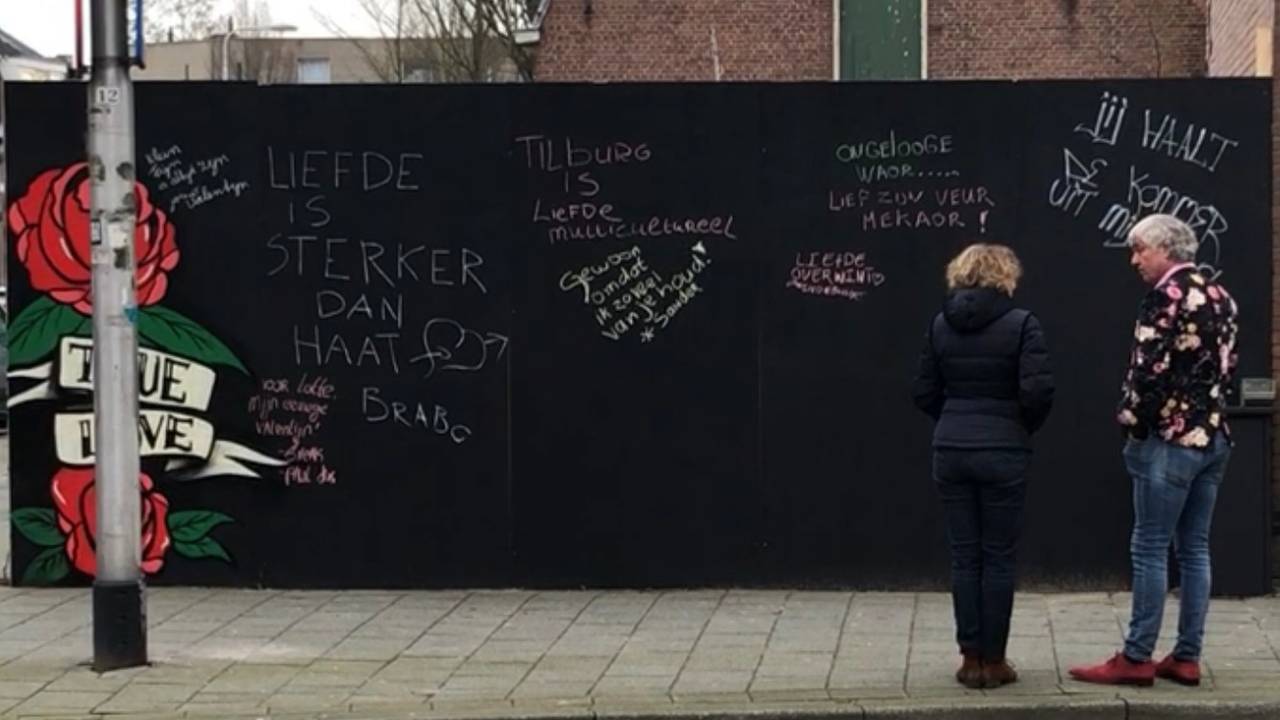 12
klein
fijn
altijd zijn
jouw
Valentijn
LIEFDE
IS
STERKER
DAN
HAAT
TRUE
LOVE
VOOR Lotte.
Mijn eenige
valentijn!
BRABO
TILBURG
IS
LIEFDE
MULTICULTUREEL
Gewoon
omdat
ik zoveel
van je houd!
* Sander
ONGELOOGE
WAOR.....
LIEF ZIJN VEUR
MEKAOR !
LIEFDE
OVERWINT
JIJ HAALT
DE KOMMER
UIT